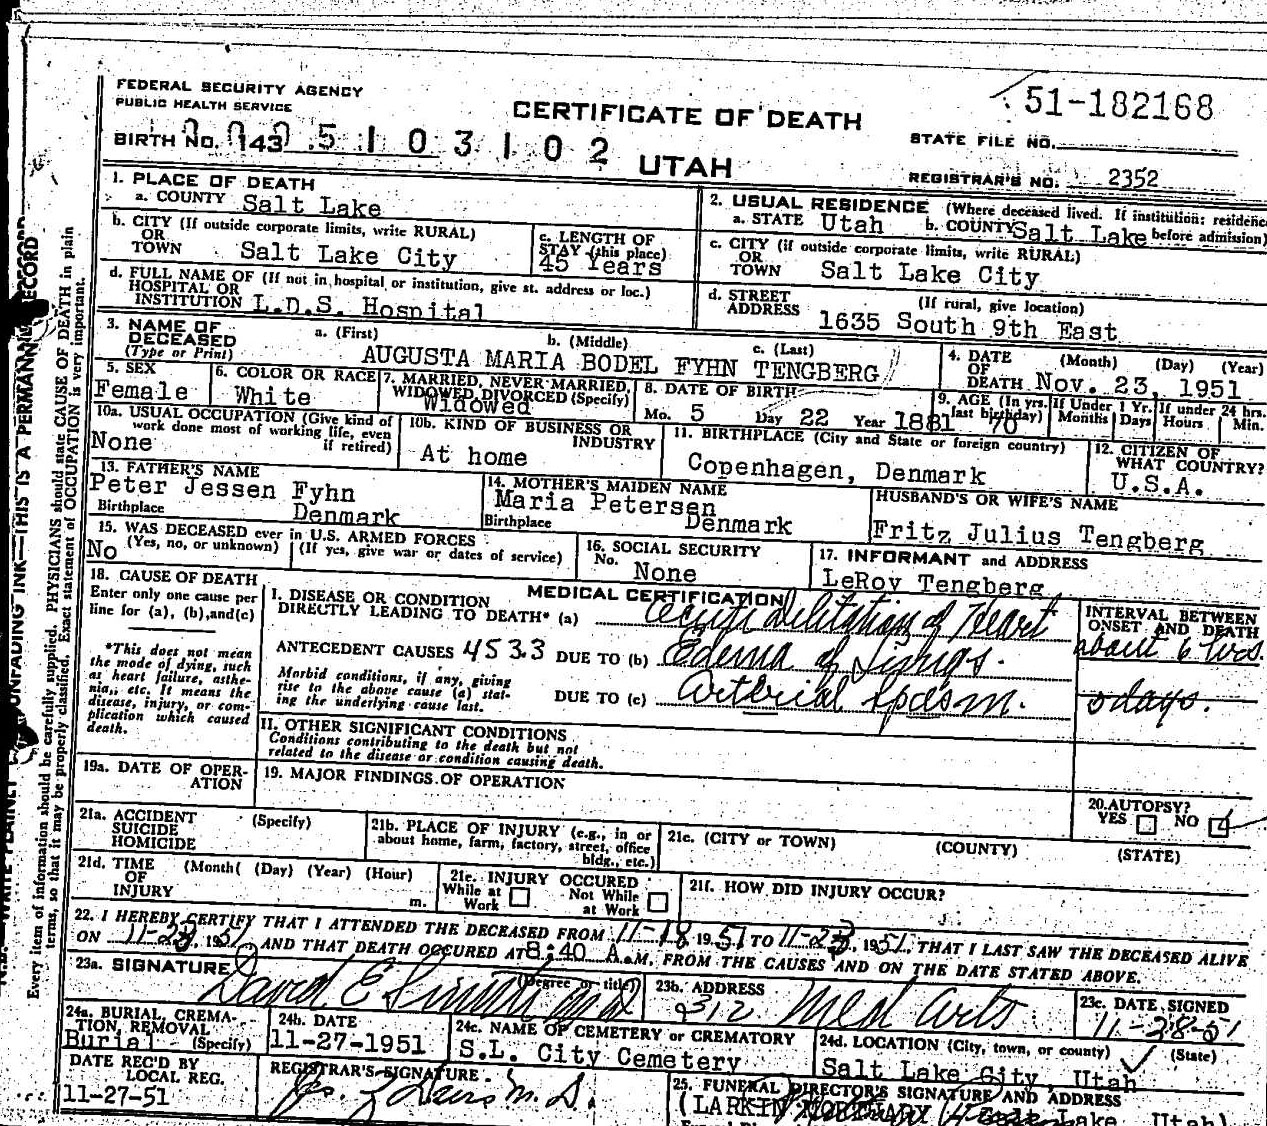 51-182168
FEDERAL SECURITY AGENCY
PUBLIC HEALTH SERVICE
CERTIFICATE OF DEATH
STATE FILE NO.
BIRTH NO. 143 5 1 0 3 1 0 2
UTAH
REGISTRAR'S NO. 2352
1. PLACE OF DEATH
a. COUNTY Salt Lake
2. USUAL RESIDENCE (Where deceased lived. If institution: residence before admission)
a. STATE Utah b. COUNTY Salt Lake
b. CITY (If outside corporate limits, write RURAL)
OR
TOWN Salt Lake City
c. LENGTH OF
STAY (this place)
45 Years
c. CITY (if outside corporate limits, write RURAL)
OR
TOWN Salt Lake City
d. FULL NAME OF (If not in hospital or institution, give st. address or loc.)
HOSPITAL OR
INSTITUTION L.D.S. Hospital
d. STREET (If rural, give location)
ADDRESS 1635 South 9th East
3. NAME OF
DECEASED
(Type or Print)
a. (First) b. (Middle) c. (Last)
AUGUSTA MARIA BODEL FYHN TENGBERG
4. DATE (Month) (Day) (Year)
OF
DEATH Nov. 23, 1951
5. SEX
Female
6. COLOR OR RACE
White
7. MARRIED, NEVER MARRIED,
WIDOWED, DIVORCED (Specify)
Widowed
8. DATE OF BIRTH
Mo. 5 Day 22 Year 1881
9. AGE (In yrs. last birthday) 70
If Under 1 Yr. Months Days
If under 24 hrs. Hours Min.
10a. USUAL OCCUPATION (Give kind of
work done most of working life, even
if retired)
None
10b. KIND OF BUSINESS OR
INDUSTRY
At home
11. BIRTHPLACE (City and State or foreign country)
Copenhagen, Denmark
12. CITIZEN OF
WHAT COUNTRY?
U.S.A.
13. FATHER'S NAME
Peter Jessen Fyhn
Birthplace Denmark
14. MOTHER'S MAIDEN NAME
Maria Petersen
Birthplace Denmark
HUSBAND'S OR WIFE'S NAME
Fritz Julius Tengberg
15. WAS DECEASED ever in U.S. ARMED FORCES
(Yes, no, or unknown) (If yes, give war or dates of service)
No
16. SOCIAL SECURITY
No. None
17. INFORMANT and ADDRESS
LeRoy Tengberg
18. CAUSE OF DEATH
Enter only one cause per
line for (a), (b), and (c)
*This does not mean
the mode of dying, such
as heart failure, asthe-
nia, etc. It means the
disease, injury, or com-
plication which caused
death.
MEDICAL CERTIFICATION
I. DISEASE OR CONDITION
DIRECTLY LEADING TO DEATH* (a) Acute Dilitation of Heart
ANTECEDENT CAUSES 4533 DUE TO (b) Edema of Lungs.
Morbid conditions, if any, giving
rise to the above cause (a) stat-
ing the underlying cause last.
DUE TO (c) Arterial Spasm.
INTERVAL BETWEEN
ONSET AND DEATH
about 6 hrs.
5 days.
II. OTHER SIGNIFICANT CONDITIONS
Conditions contributing to the death but not
related to the disease or condition causing death.
19a. DATE OF OPER-
ATION
19. MAJOR FINDINGS OF OPERATION
20. AUTOPSY?
YES NO
21a. ACCIDENT (Specify)
SUICIDE
HOMICIDE
21b. PLACE OF INJURY (e.g., in or
about home, farm, factory, street, office
bldg., etc.)
21c. (CITY or TOWN) (COUNTY) (STATE)
21d. TIME (Month) (Day) (Year) (Hour)
OF
INJURY m.
21e. INJURY OCCURED
While at Work Not While at Work
21f. HOW DID INJURY OCCUR?
22. I HEREBY CERTIFY THAT I ATTENDED THE DECEASED FROM 11-18 1951 TO 11-23, 1951, THAT I LAST SAW THE DECEASED ALIVE
ON 11-23, 1951 AND THAT DEATH OCCURED AT 8:40 A.M. FROM THE CAUSES AND ON THE DATE STATED ABOVE.
23a. SIGNATURE (Degree or title)
David E. M.D.
23b. ADDRESS
312 Med Arts
23c. DATE SIGNED
11-28-51
24a. BURIAL, CREMA-
TION, REMOVAL
(Specify)
Burial
24b. DATE
11-27-1951
24c. NAME OF CEMETERY or CREMATORY
S.L. City Cemetery
24d. LOCATION (City, town, or county) (State)
Salt Lake City, Utah
DATE REC'D BY
LOCAL REG.
11-27-51
REGISTRAR'S SIGNATURE
M.D.
25. FUNERAL DIRECTOR'S SIGNATURE AND ADDRESS
(LARKIN MORTUARY Salt Lake, Utah)
Every item of information should be carefully supplied. PHYSICIANS should state CAUSE OF DEATH in plain
terms, so that it may be properly classified. Exact statement of OCCUPATION is very important.
UNFADING INK—THIS IS A PERMANENT RECORD